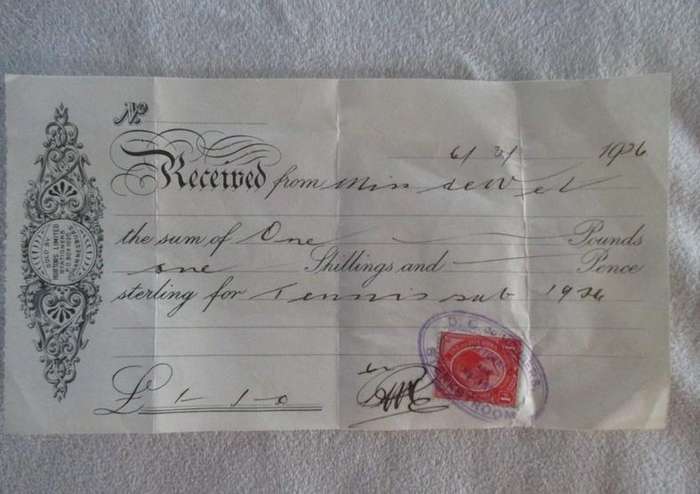 No
6/3/ 1926
Received from Miss de Wet
the sum of One Pounds
one Shillings and Pence
sterling for Tennis sub 1926
£ 1-1-0
LIMITED